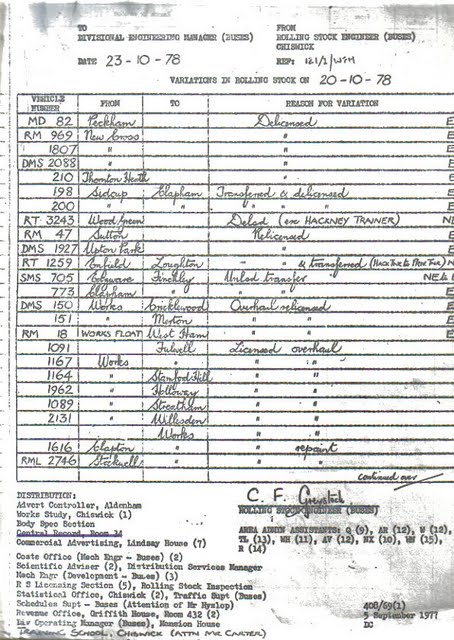 TO FROM
DIVISIONAL ENGINEERING MANAGER (BUSES) ROLLING STOCK ENGINEER (BUSES)
CHISWICK
DATE 23-10-78 REF: 121/2/WJH
VARIATIONS IN ROLLING STOCK ON 20-10-78
VEHICLE NUMBER FROM TO REASON FOR VARIATION
MD 82 Peckham Delicensed E
RM 969 New Cross " E
1807 " " E
DMS 2088 " " E
210 Thornton Heath " E
198 Sidcup Clapham Transferred & delicensed E
200 " " " " " E
RT 3243 Wood Green Delsd (exc HACKNEY TRAINER) NE
RM 47 Sutton Relicensed E
DMS 1927 Upton Park " E
RT 1259 Enfield Loughton - " - & transferred
SMS 705 Edgware Finchley Unlsd transfer NE & E
773 Clapham " " " E
DMS 150 Works Cricklewood Overhaul relicensed E
151 " Merton " " E
RM 18 WORKS FLOAT West Ham " " E
1091 Fulwell Licensed overhaul
1167 Works " " "
1164 " Stamford Hill " "
1962 " Holloway " "
1089 " Streatham " "
2131 " Willesden " "
Works " "
1616 Clapton " " repaint
RML 2746 Stockwell " " "
continued over
DISTRIBUTION: C. F. Greystock
Advert Controller, Aldenham ROLLING STOCK ENGINEER (BUSES)
Works Study, Chiswick (1)
Body Spec Section AREA ADMIN ASSISTANTS: Q (9), AR (12), W (12),
Central Record, Room 34 TL (13), WH (11), AV (12), NX (10), WN (15),
Commercial Advertising, Lindsay House (7) R (14)
Costs Office (Mech Engr - Buses) (2)
Scientific Adviser (2), Distribution Services Manager
Mech Engr (Development - Buses) (3)
R S Licensing Section (5), Rolling Stock Inspection
Statistical Office, Chiswick (2), Traffic Supt (Buses)
Schedules Supt - Buses (Attention of Mr Hyslop)
Revenue Office, Griffith House, Room 432 (2) 408/69(1)
Bus Operating Manager (Buses), Mansion House 5 September 1977
TRAINING SCHOOL, CHISWICK (ATTN MR CARTER)